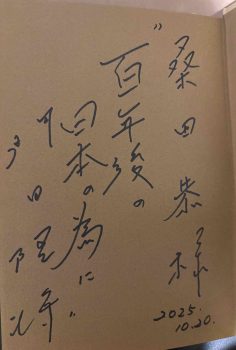 桑田恭様
"百年後の
日本の為に"
門田隆将
2025.
10.20.